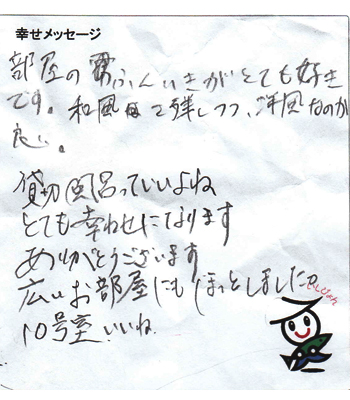 幸せメッセージ
部屋のふんいきがとても好き
です。和風を残しつつ、洋風なのが
良い。
貸切風呂っていいよね
とても幸わせになります
ありがとうございます
広いお部屋にもほっとしました。
10号室いいね。